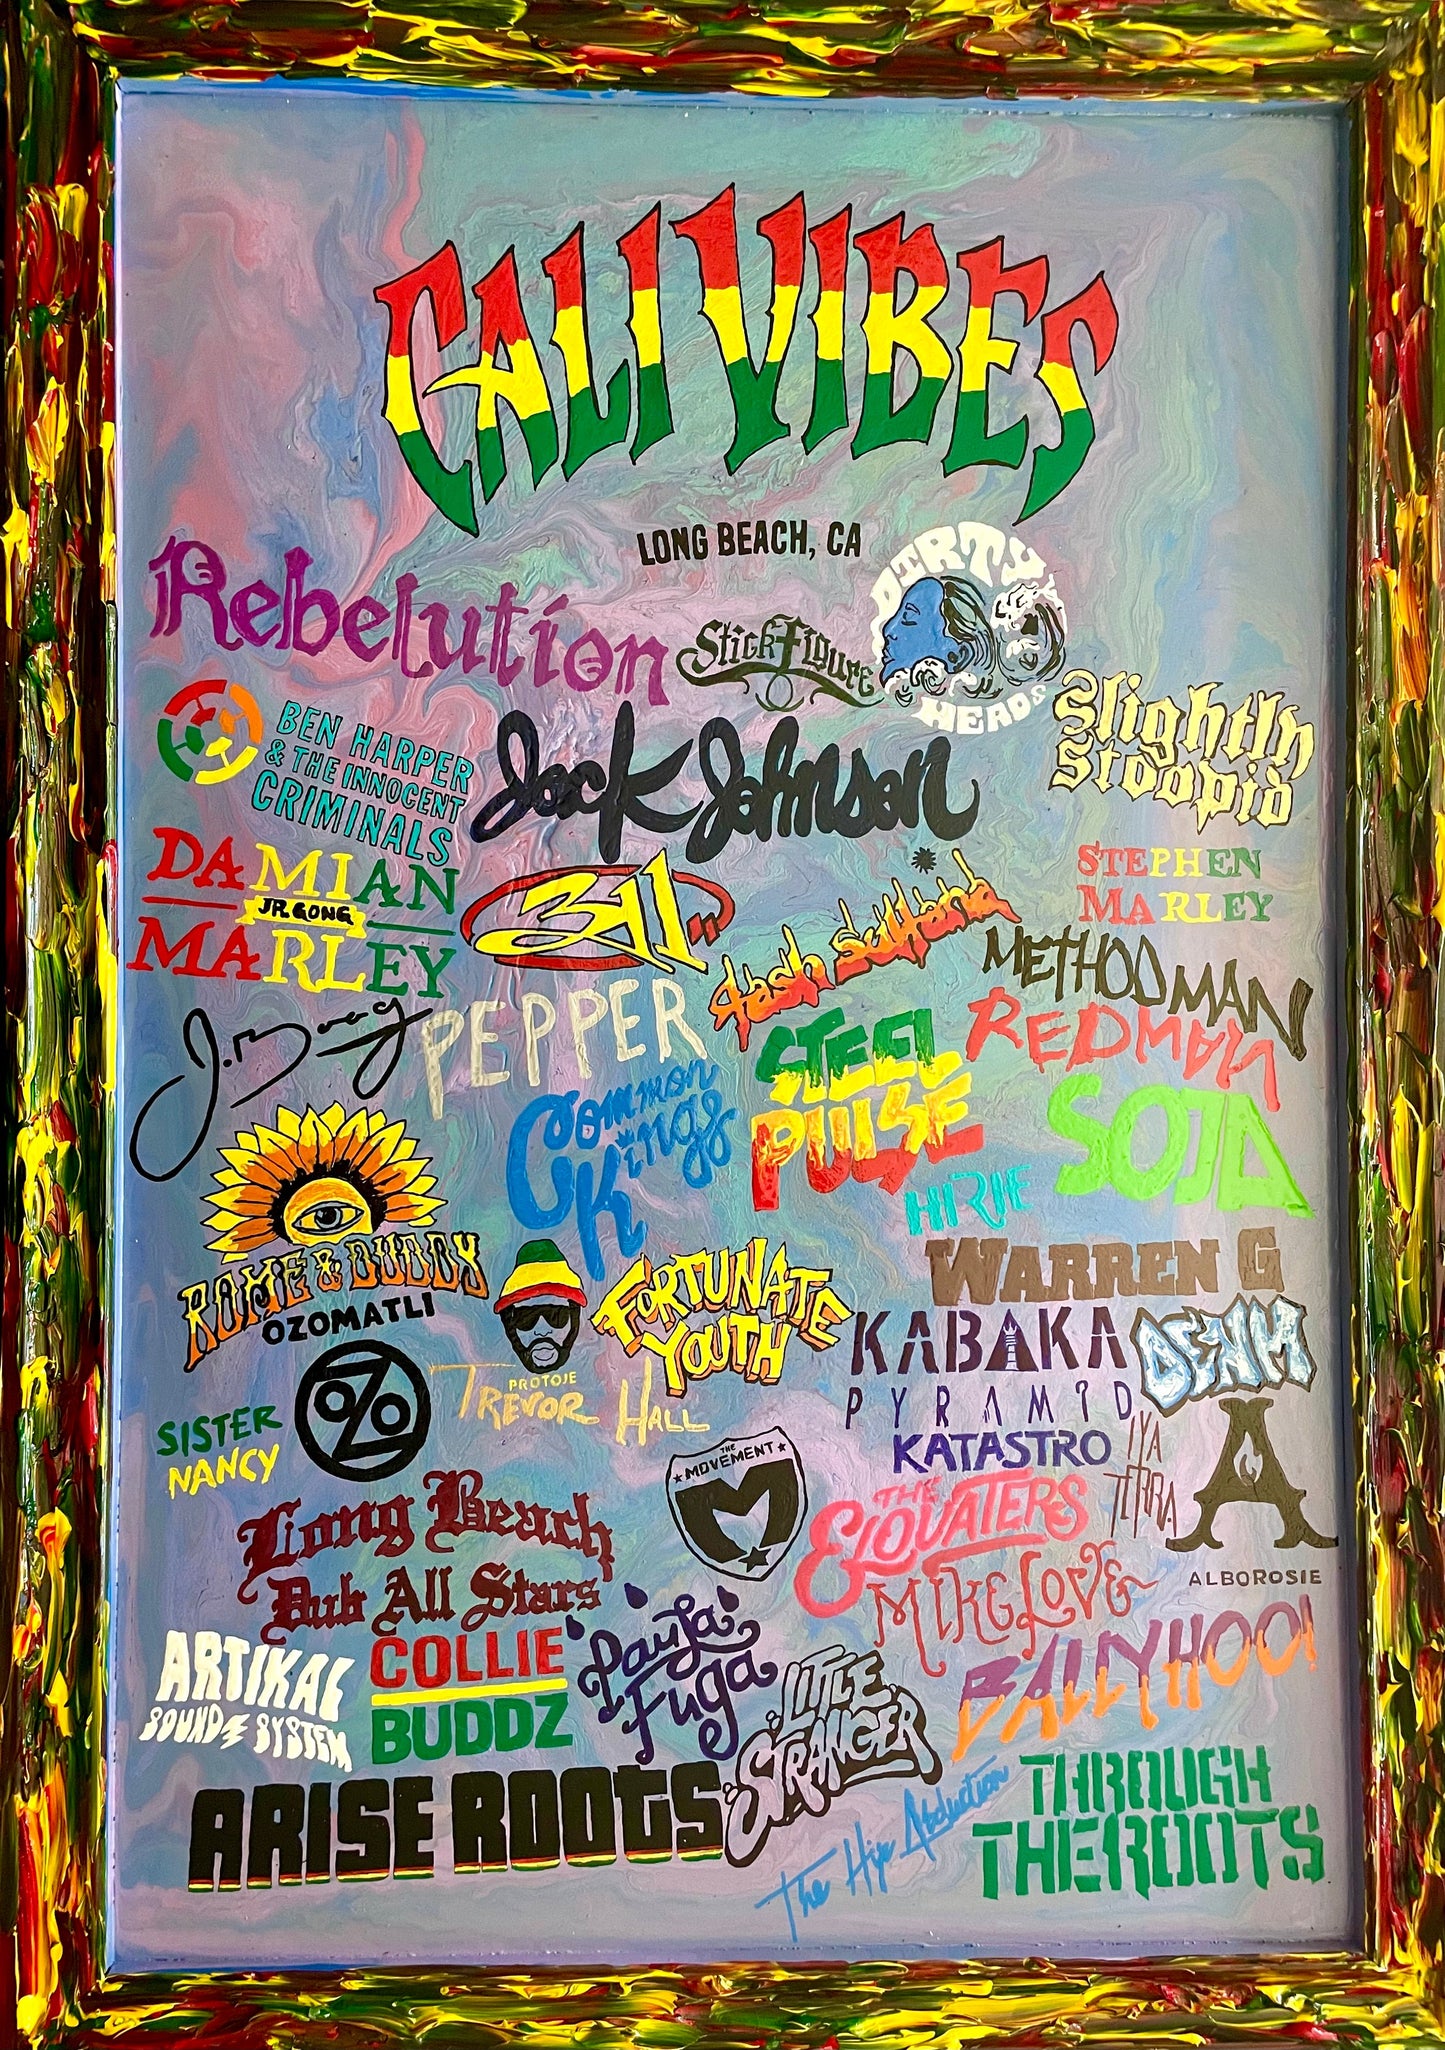 CALI VIBES
LONG BEACH, CA
Rebelution
Stick Figure
DIRTY
HEADS
Slightly
Stoopid
BEN HARPER
& THE INNOCENT
CRIMINALS
Jack Johnson
DAMIAN
JR. GONG
MARLEY
311
tash sultana
STEPHEN
MARLEY
METHOD MAN
REDMAN
J. Boog
PEPPER
Common
Kings
STEEL
PULSE
HIRIE
SOJA
ROME & DUDDY
OZOMATLI
OZO
PROTOJE
FORTUNATE
YOUTH
WARREN G
KABAKA
PYRAMID
DENM
TREVOR HALL
SISTER
NANCY
KATASTRO
IYA
TERRA
A
ALBOROSIE
THE
MOVEMENT
M
Long Beach
Dub All Stars
THE
ELOVATERS
MIKE LOVE
ARTIKAL
SOUND SYSTEM
COLLIE
BUDDZ
Paula
Fuga
LITTLE
STRANGER
BALLYHOO!
ARISE ROOTS
The Hip Abduction
THROUGH
THE ROOTS